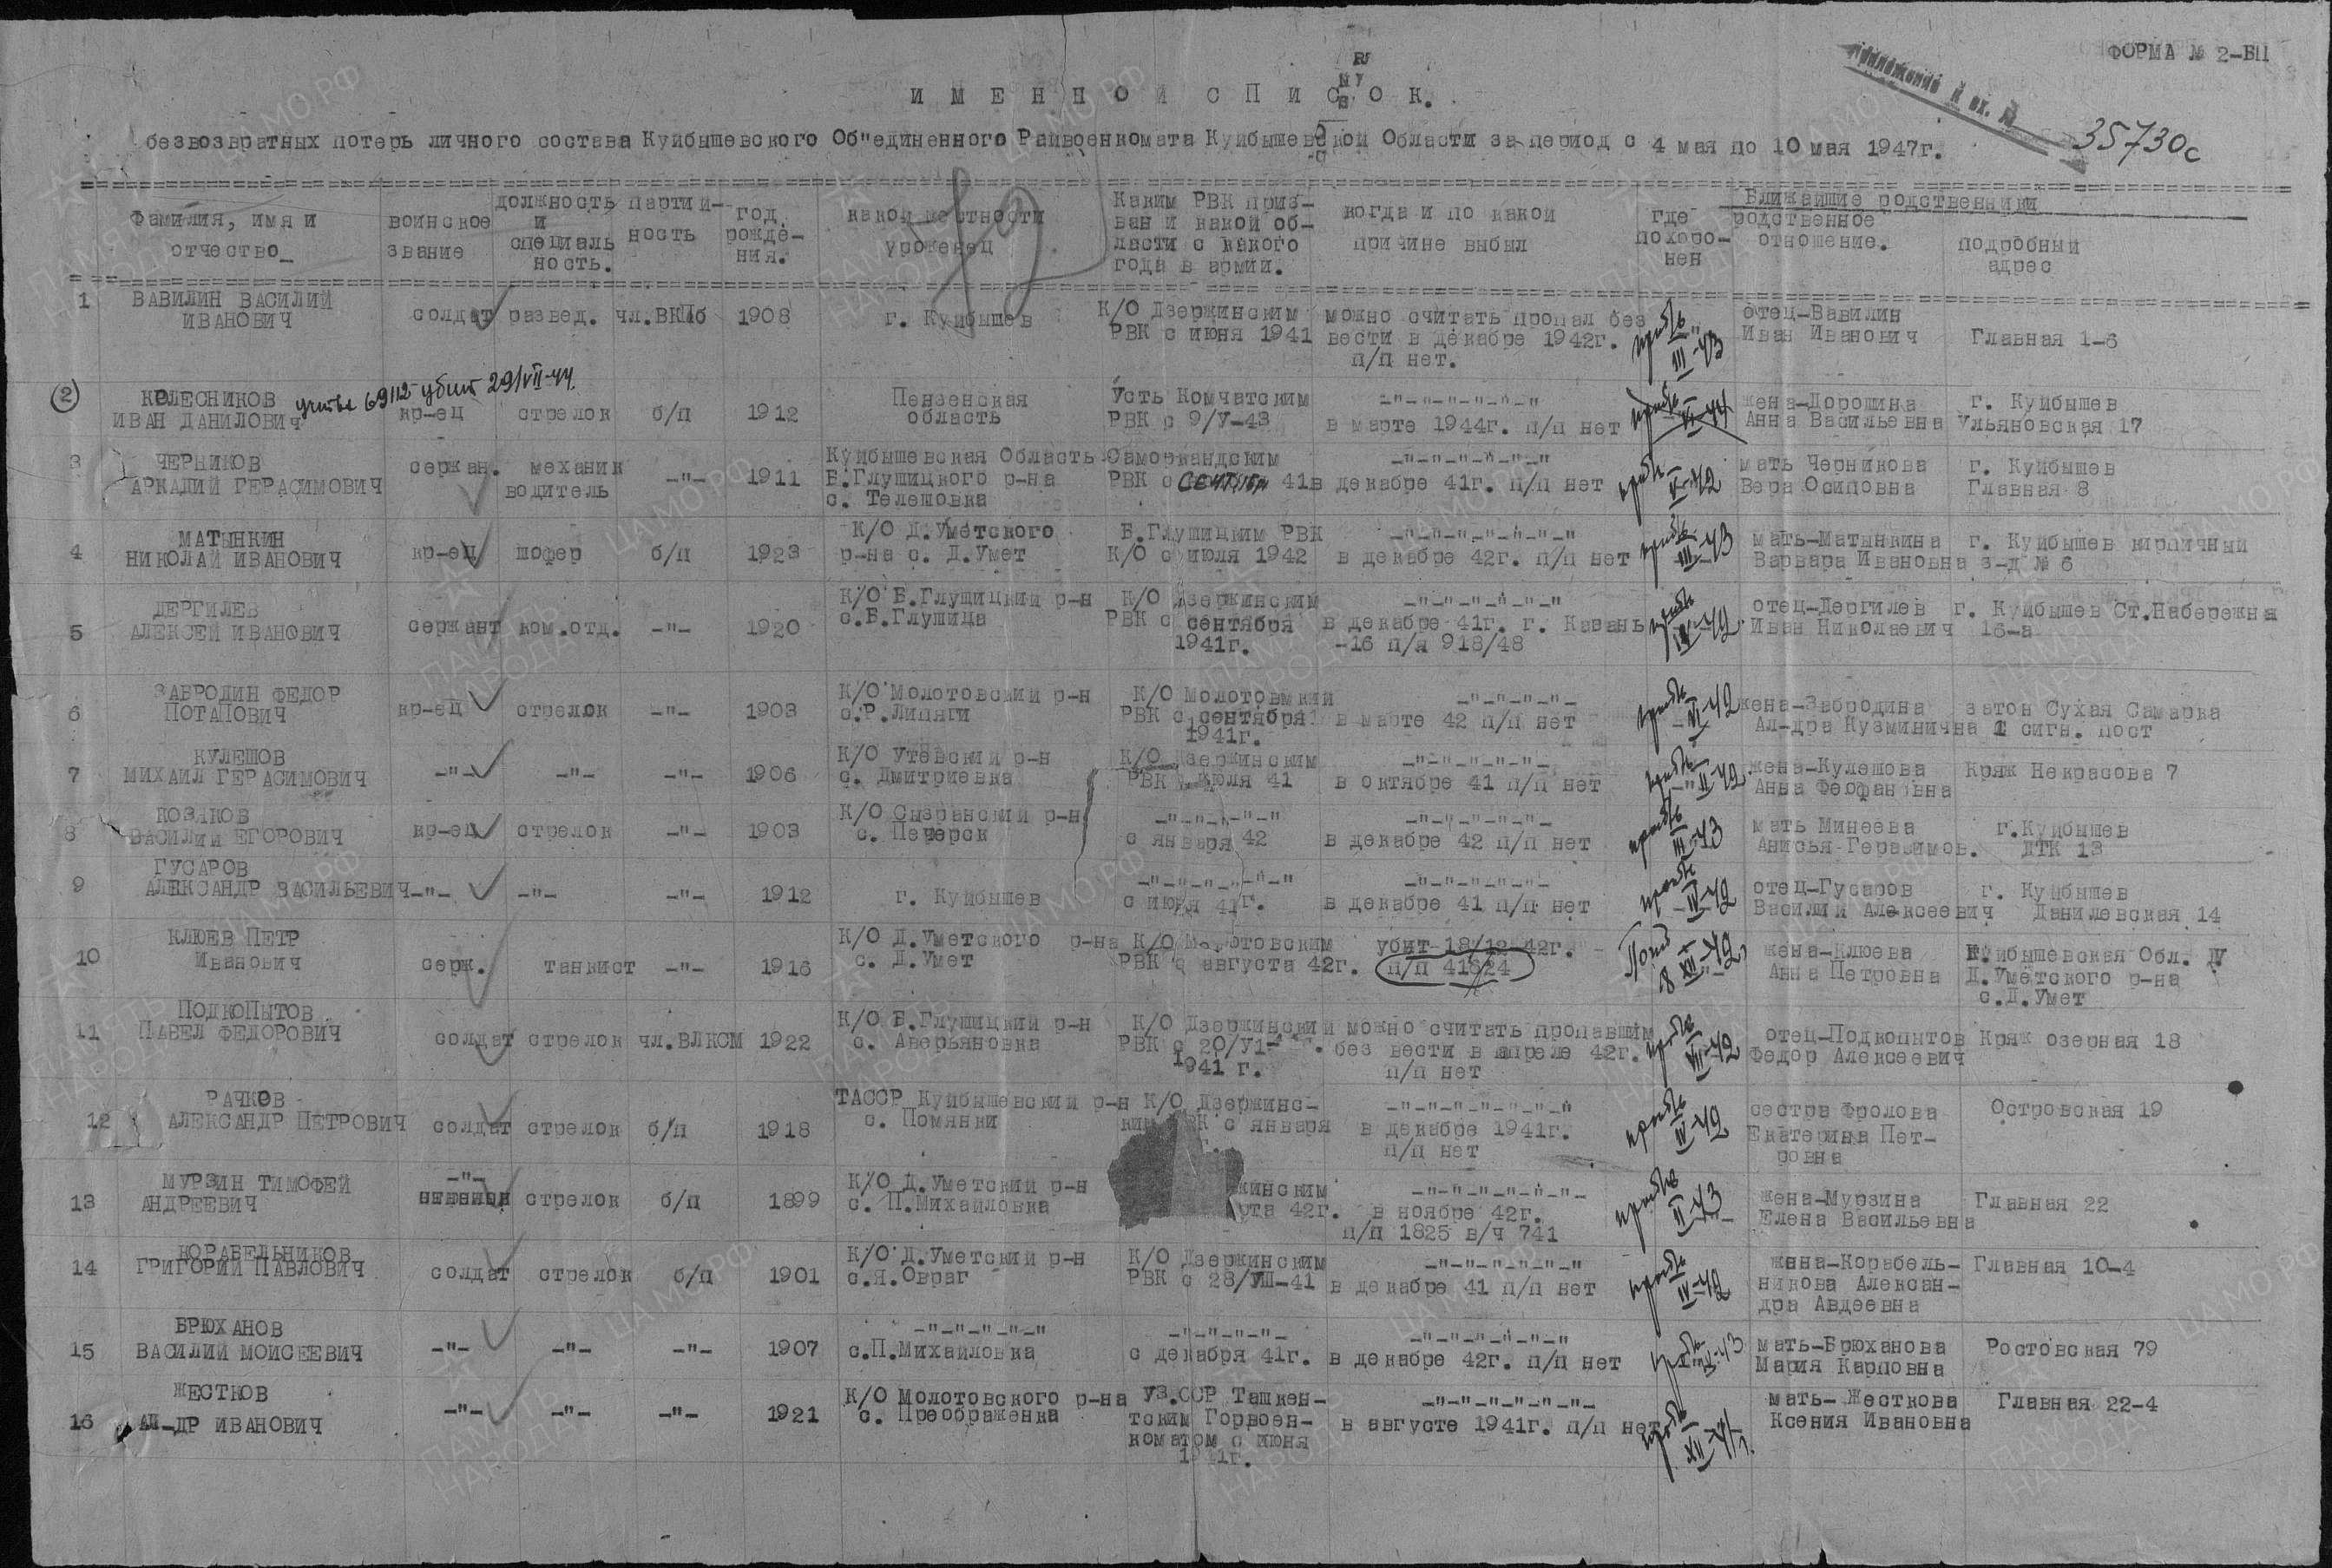 ФОРМА № 2-БП
приложение к вх. №
35730с
ИМЕННОЙ СПИСОК.
безвозвратных потерь личного состава Куйбышевского Об"единенного Райвоенкомата Куйбышевской Области за период с 4 мая по 10 мая 1947г.
Фамилия, имя и отчество_
воинское звание
должность и специаль ность.
партий- ность
год рожде- ния.
какой местности уроженец
Каким РВК приз- ван и какой об- ласти с какого года в армии.
когда и по какой причине выбыл
где похоро- нен
Ближайшие родственники
родственное отношение.
подробный адрес
1 ВАВИЛИН ВАСИЛИЙ ИВАНОВИЧ солдат развед. чл.ВКПб 1908 г. Куйбышев К/О Дзержинским РВК с июня 1941 можно считать пропал без вести в декабре 1942г. п/п нет. III-43 отец-Вавилин Иван Иванович Главная 1-6
2 КОЛЕСНИКОВ ИВАН ДАНИЛОВИЧ учтен 69112 убит 29/VII-44. кр-ец стрелок б/п 1912 Пензенская область Усть Комчатским РВК с 9/У-43 -"-"-"-"-"-" в марте 1944г. п/п нет VI-44 жена-Дорошина Анна Васильевна г. Куйбышев Ульяновская 17
3 ЧЕРНИКОВ АРКАДИЙ ГЕРАСИМОВИЧ сержан. механик водитель -"- 1911 Куйбышевская Область Б.Глушицкого р-на с. Телешовка Саморкандским РВК с сентября 41 -"-"-"-"-"-" в декабре 41г. п/п нет V-42 мать Черникова Вера Осиповна г. Куйбышев Главная 8
4 МАТЫНКИН НИКОЛАЙ ИВАНОВИЧ кр-ец шофер б/п 1923 К/О Д.Уметского р-на с. Д.Умет Б.Глушицким РВК К/О с июля 1942 -"-"-"-"-"-"-" в декабре 42г. п/п нет III-43 мать-Матынкина Варвара Ивановна г. Куйбышев кирпичный з-д № 6
5 ДЕРГИЛЕВ АЛЕКСЕЙ ИВАНОВИЧ сержант ком.отд. -"- 1920 К/О Б.Глушицкий р-н с.Б.Глушица К/О Дзержинским РВК с сентября 1941г. -"-"-"-"-"-" в декабре 41г. г. Казань -16 п/я 918/48 IV-42. отец-Дергилев Иван Николаевич г. Куйбышев Ст.Набережная 16-а
6 ЗАБРОДИН ФЕДОР ПОТАПОВИЧ кр-ец стрелок -"- 1903 К/О Молотовский р-н с.Р.Липяги К/О Молотовмкий РВК с сентября 1941г. -"-"-"-"- в марте 42 п/п нет VI-42 жена-Забродина Ал-дра Кузминична затон Сухая Самарка 1 сигн. пост
7 КУЛЕШОВ МИХАИЛ ГЕРАСИМОВИЧ -"- -"- -"- 1906 К/О Утевский р-н с. Дмитриевка К/О Дзержинским РВК июля 41 -"-"-"-"-"- в октябре 41 п/п нет II-42 жена-Кулешова Анна Феофановна Кряж Некрасова 7
8 КОЗЛКОВ ВАСИЛИЙ ЕГОРОВИЧ кр-ец стрелок -"- 1903 К/О Сызранский р-н с. Печерск -"-"-"-"-" с января 42 -"-"-"-"-"- в декабре 42 п/п нет III-43 мать Минеева Анисья Герасимов. г.Куйбышев ДТК 13
9 ГУСАРОВ АЛЕКСАНДР ВАСИЛЬЕВИЧ -"- -"- -"- 1912 г. Куйбышев -"-"-"-"-"-" с июня 41г. -"-"-"-"-"- в декабре 41 п/п нет IV-42 отец-Гусаров Василий Алексеевич г. Куйбышев Данилевская 14
10 КЛЮЕВ ПЕТР Иванович серж. танкист -"- 1916 К/О Д.Уметского р-на с. Д.Умет К/О Молотовским РВК с августа 42г. убит 18/12-42г. п/п 41824 Погиб 18 XII-42г жена-Клюева Анна Петровна Куйбышевская Обл. Д.Уметского р-на с.Д.Умет
11 ПОДКОПЫТОВ ПАВЕЛ ФЕДОРОВИЧ солдат стрелок чл.ВЛКСМ 1922 К/О Б.Глушицкий р-н с. Аверьяновка К/О Дзержинский РВК с 20/У1- 1941 г. можно считать пропавшим без вести в апреле 42г. п/п нет VII-42 отец-Подкопытов Федор Алексеевич Кряж озерная 18
12 РАЧКОВ АЛЕКСАНДР ПЕТРОВИЧ солдат стрелок б/п 1918 ТАССР Куйбышевский р-н с. Помянки К/О Дзержинс- ким РВК с января -"-"-"-"-"-"-" в декабре 1941г. п/п нет IV-42 сестра Фролова Екатерина Пет- ровна Островская 19
13 МУРЗИН ТИМОФЕЙ АНДРЕЕВИЧ -"- стрелок б/п 1899 К/О Д.Уметский р-н с. П.Михайловка жинским рта 42г. -"-"-"-"-"-"- в ноябре 42г. п/п 1825 в/ч 741 II-43 жена-Мурзина Елена Васильевна Главная 22
14 КОРАБЕЛЬНИКОВ ГРИГОРИЙ ПАВЛОВИЧ солдат стрелок б/п 1901 К/О Д.Уметский р-н с.Я.Овраг К/О Дзержинским РВК с 28/УШ-41 -"-"-"-"-"-" в декабре 41 п/п нет IV-42 жена-Корабель- никова Алексан- дра Авдеевна Главная 10-4
15 БРЮХАНОВ ВАСИЛИЙ МОИСЕЕВИЧ -"- -"- -"- 1907 -"-"-"-"-" с.П.Михайловка -"-"-"-"- с декабря 41г. -"-"-"-"-"-" в декабре 42г. п/п нет мать-Брюханова Мария Карповна Ростовская 79
16 ЖЕСТКОВ АЛ-ДР ИВАНОВИЧ -"- -"- -"- 1921 К/О Молотовского р-на с. Преображенка Уз.ССР Ташкен- тским Горвоен- коматом с июня 1941г. -"-"-"-"-"-"- в августе 1941г. п/п нет XII-41г. мать-Жесткова Ксения Ивановна Главная 22-4